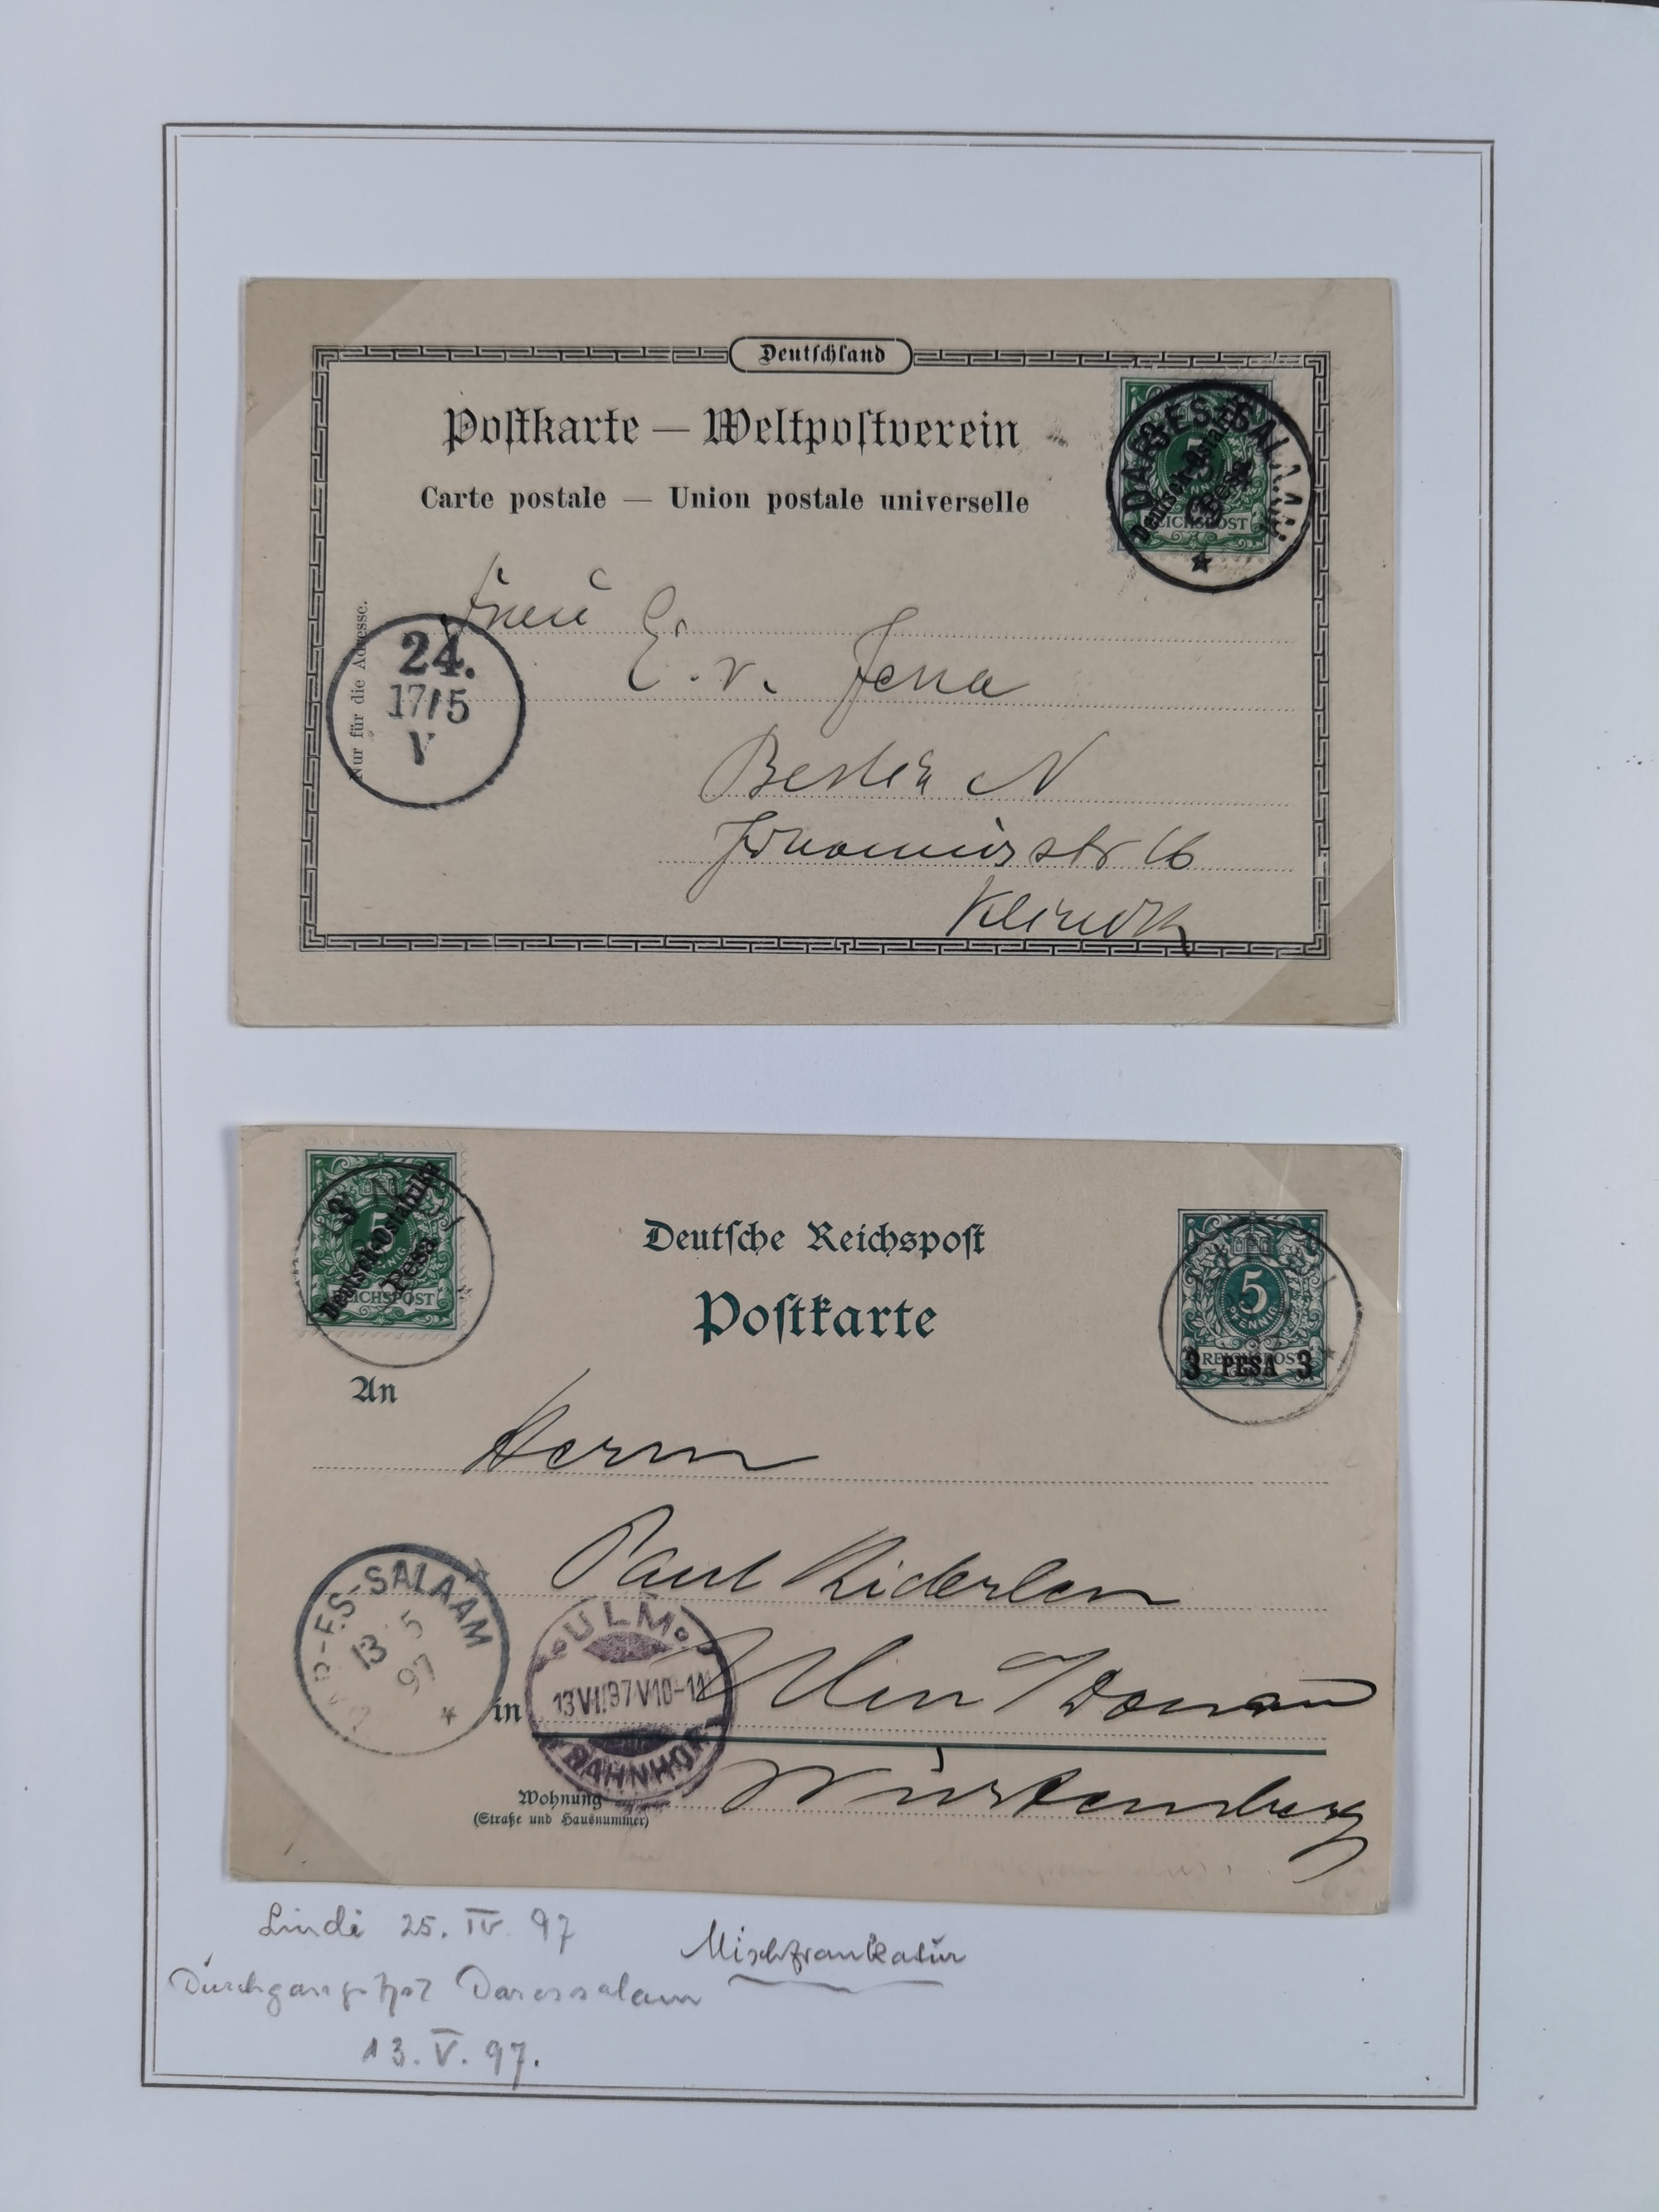 Deutschland
Postkarte — Weltpostverein
Carte postale — Union postale universelle
DAR-ES-SALAAM
Deutsch-Ostafrika
REICHSPOST
Nur für die Adresse.
24.
17/5
V
E. v. Jena
Berlin N
Johannisstr 16
Klinik
3
5
PFENNIG
Deutsch-Ostafrika
Pesa
REICHSPOST
Deutsche Reichspost
Postkarte
5
PFENNIG
REICHSPOST
3 PESA 3
An
Herrn
Paul Kiderlen
DAR-ES-SALAAM
13 5
97
ULM
13 VI. 97 V. 10-11
BAHNHOF
in Ulm a/Donau
Württemberg
Wohnung
(Straße und Hausnummer)
Lindi 25. IV. 97
Mischfrankatur
Daressalam
13. V. 97.